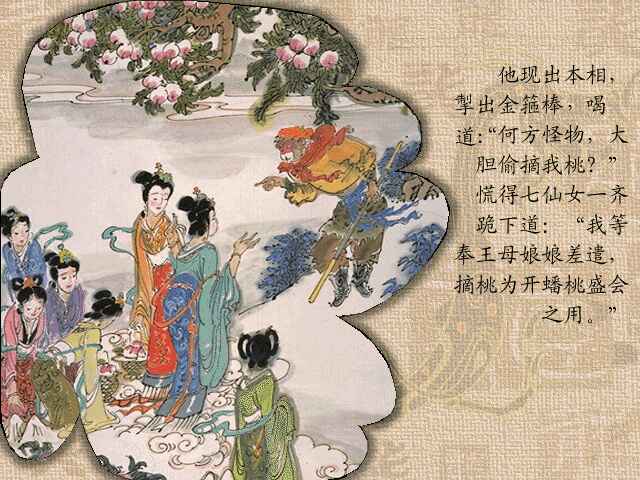 他现出本相，
掣出金箍棒，喝
道：“何方怪物，大
胆偷摘我桃？”
慌得七仙女一齐
跪下道：“我等
奉王母娘娘差遣，
摘桃为开蟠桃盛会
之用。”